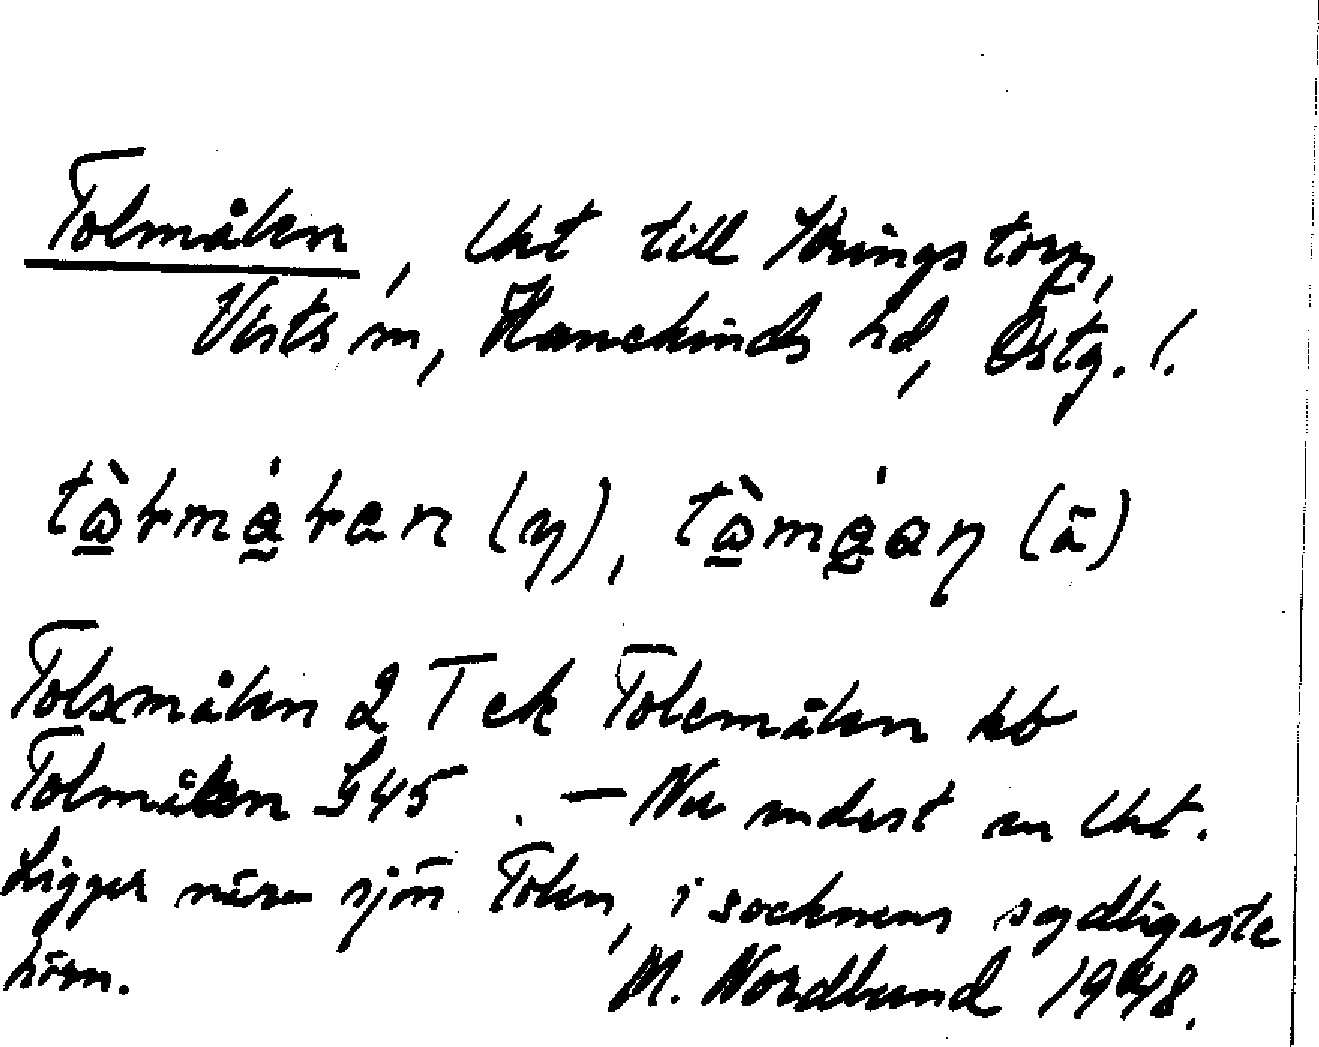 Tolmålen, Uht till Kringstorp,
Västs:n, Hanekinds hd, Östg. l.
(y), (ä)
Tolsmålen 2 T ek Tolemålen kb
Tolmålen G45. – Nu endast en Uht.
Ligger nära sjön Tolen, i socknens sydligaste
hörn. M. Nordlund 1948.